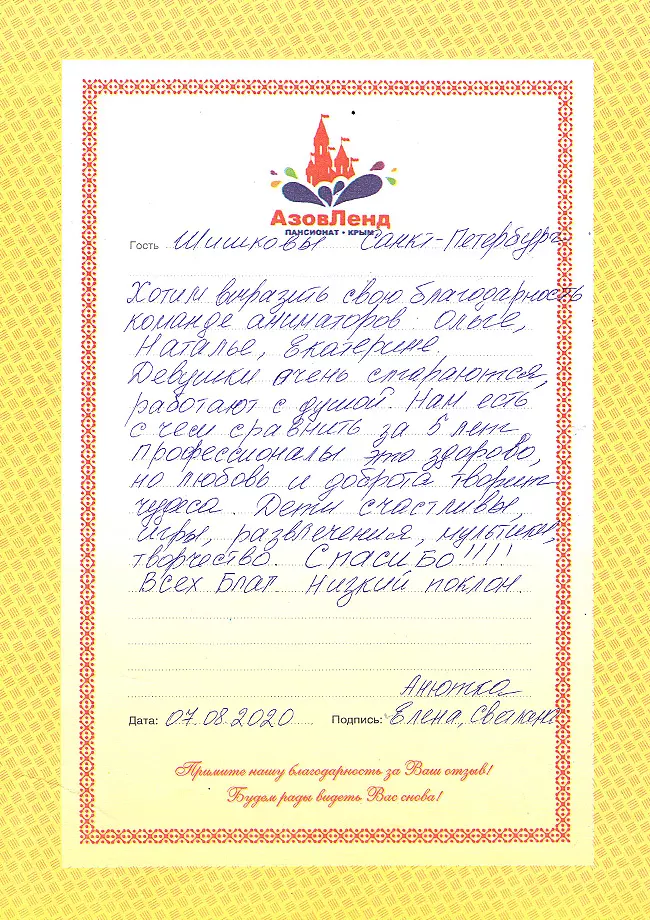 АзовЛенд
ПАНСИОНАТ • КРЫМ
Гость Шишковы Санкт-Петербург
Хотим выразить свою благодарность
команде аниматоров Ольге,
Наталье, Екатерине.
Девушки очень стараются,
работают с душой. Нам есть
с чем сравнить за 5 лет.
Профессионалы это здорово,
но любовь и доброта творит
чудеса. Дети счастливы,
игры, развлечения, мультики,
творчество. Спасибо!!!!
Всех Благ. Низкий поклон.
Анютка
Дата: 07.08.2020 Подпись: Елена, Светлана
Примите нашу благодарность за Ваш отзыв!
Будем рады видеть Вас снова!